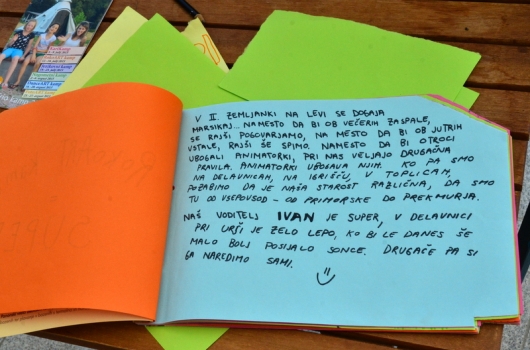 V II. ZEMLJANKI NA LEVI SE DOGAJA
MARSIKAJ... NAMESTO DA BI OB VEČERIH ZASPALE,
SE RAJŠI POGOVARJAMO, NA MESTO DA BI OB JUTRIH
VSTALE, RAJŠI ŠE SPIMO. NAMESTO DA BI OTROCI
UBOGALI ANIMATORKI, PRI NAS VELJAJO DRUGAČNA
PRAVILA. ANIMATORKI UBOGAVA NJIH. KO PA SMO
NA DELAVNICAH, NA IGRIŠČU, V TOPLICAH,
POZABIMO DA JE NAŠA STAROST RAZLIČNA, DA SMO
TU OD VSEPOVSOD - OD PRIMORSKE DO PREKMURJA.
NAŠ VODITELJ IVAN JE SUPER, V DELAVNICI
PRI URŠI JE ZELO LEPO, KO BI LE DANES ŠE
MALO BOLJ POSIJALO SONCE. DRUGAČE PA SI
GA NAREDIMO SAMI.